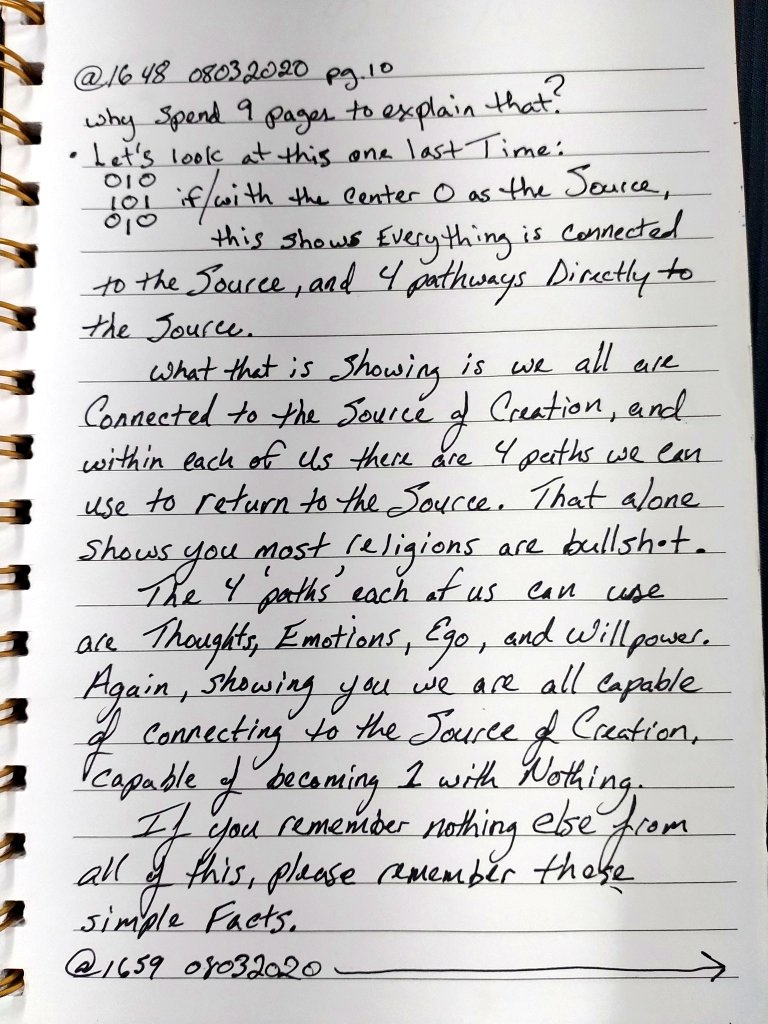 @1648 08032020 pg.10
why spend 9 pages to explain that?
• Let's look at this one last Time:
010
101 if/with the center 0 as the Source,
010
this shows Everything is connected
to the Source, and 4 pathways Directly to
the Source.
What that is showing is we all are
Connected to the Source of Creation, and
within each of us there are 4 paths we can
use to return to the Source. That alone
shows you most religions are bullshit.
The 4 'paths' each of us can use
are Thoughts, Emotions, Ego, and Willpower.
Again, showing you we are all capable
of connecting to the Source of Creation,
capable of becoming 1 with Nothing.
If you remember nothing else from
all of this, please remember these
simple Facts.
@1659 08032020 →